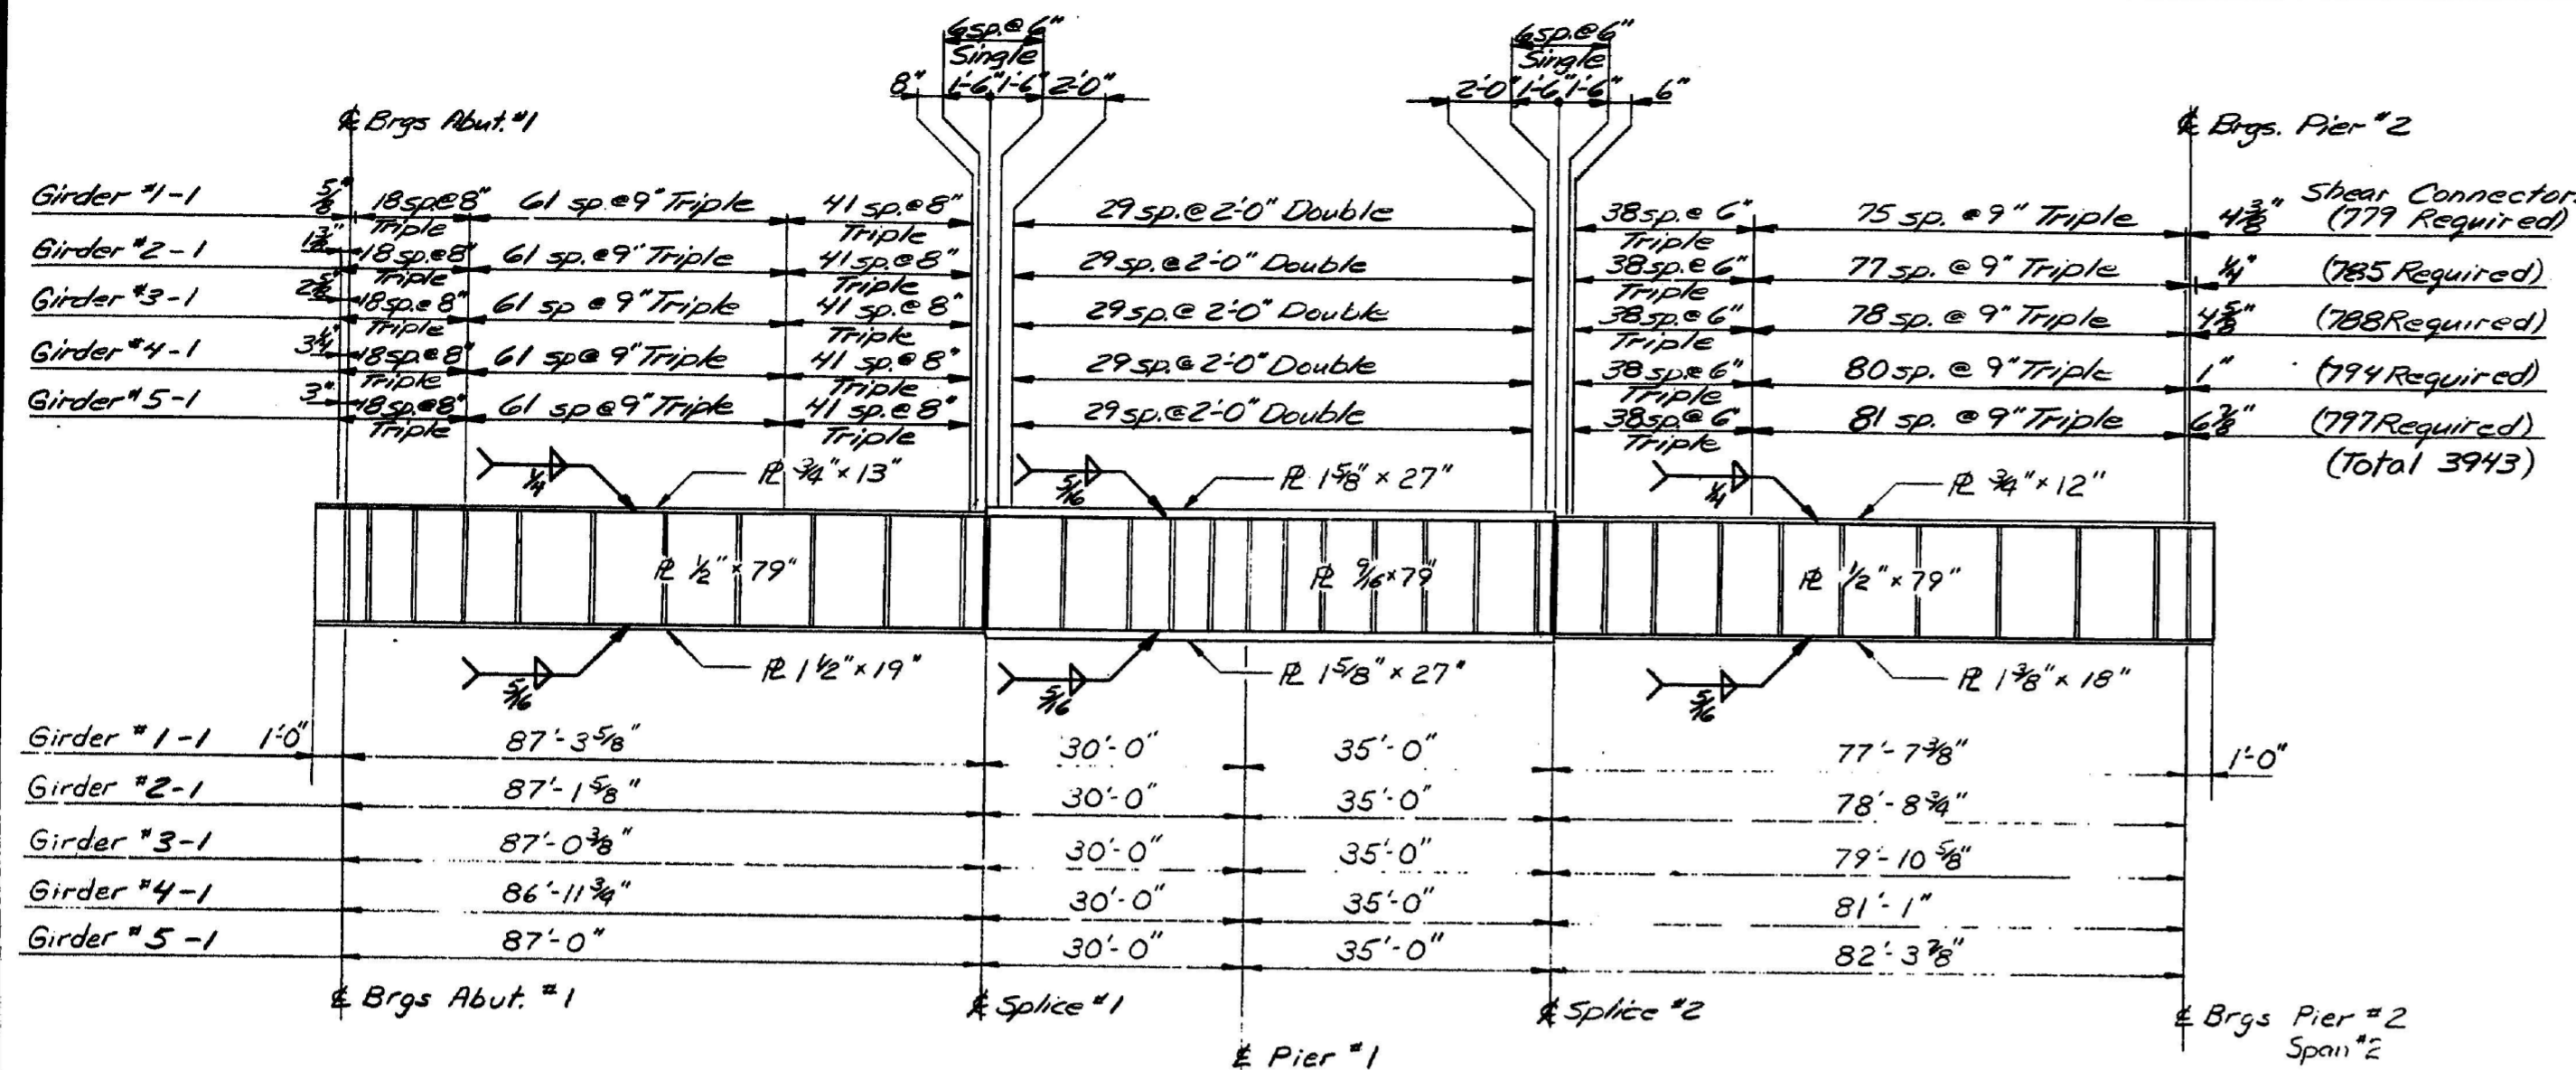 6sp.@6" 6sp.@6"
Single Single
8" 1'-6" 1'-6" 2'-0" 2'-0" 1'-6" 1'-6" 6"
℄ Brgs Abut. #1 ℄ Brgs. Pier #2
Shear Connectors
Girder #1-1 5/8" 18sp@8" Triple 61 sp.@9" Triple 41 sp.@8" Triple 29 sp.@2'-0" Double 38sp.@6" Triple 75 sp. @9" Triple 4 3/8" (779 Required)
Girder #2-1 1 3/8" 18sp.@8" Triple 61 sp.@9" Triple 41sp.@8" Triple 29 sp.@2'-0" Double 38sp.@6" Triple 77 sp. @ 9" Triple 1/4" (785 Required)
Girder #3-1 2 5/8" 18sp.@8" Triple 61 sp @ 9" Triple 41 sp.@8" Triple 29sp.@ 2'-0" Double 38sp.@6" Triple 78 sp. @ 9" Triple 4 5/8" (788 Required)
Girder #4-1 3 1/4" 18sp.@8" Triple 61 sp@ 9" Triple 41 sp.@8" Triple 29 sp.@ 2'-0" Double 38 sp@6" Triple 80 sp. @ 9" Triple 1" (794 Required)
Girder #5-1 3" 18sp.@8" Triple 61 sp@9" Triple 41 sp.@8" Triple 29 sp.@2'-0" Double 38sp.@6" Triple 81 sp. @ 9" Triple 6 7/8" (797 Required)
(Total 3943)
1/4 ℄ 3/4" x 13" 5/16 ℄ 1 5/8" x 27" 1/4 ℄ 3/4" x 12"
℄ 1/2" x 79" ℄ 9/16 x 79" ℄ 1/2" x 79"
5/16 ℄ 1 1/2" x 19" 5/16 ℄ 1 5/8" x 27" 5/16 ℄ 1 3/8" x 18"
Girder #1-1 1'-0" 87'-3 5/8" 30'-0" 35'-0" 77'-7 3/8" 1'-0"
Girder #2-1 87'-1 5/8" 30'-0" 35'-0" 78'-8 3/4"
Girder #3-1 87'-0 3/8" 30'-0" 35'-0" 79'-10 5/8"
Girder #4-1 86'-11 3/4" 30'-0" 35'-0" 81'-1"
Girder #5-1 87'-0" 30'-0" 35'-0" 82'-3 7/8"
℄ Brgs Abut. #1 ℄ Splice #1 ℄ Splice #2 ℄ Brgs Pier #2
Span #2
℄ Pier #1